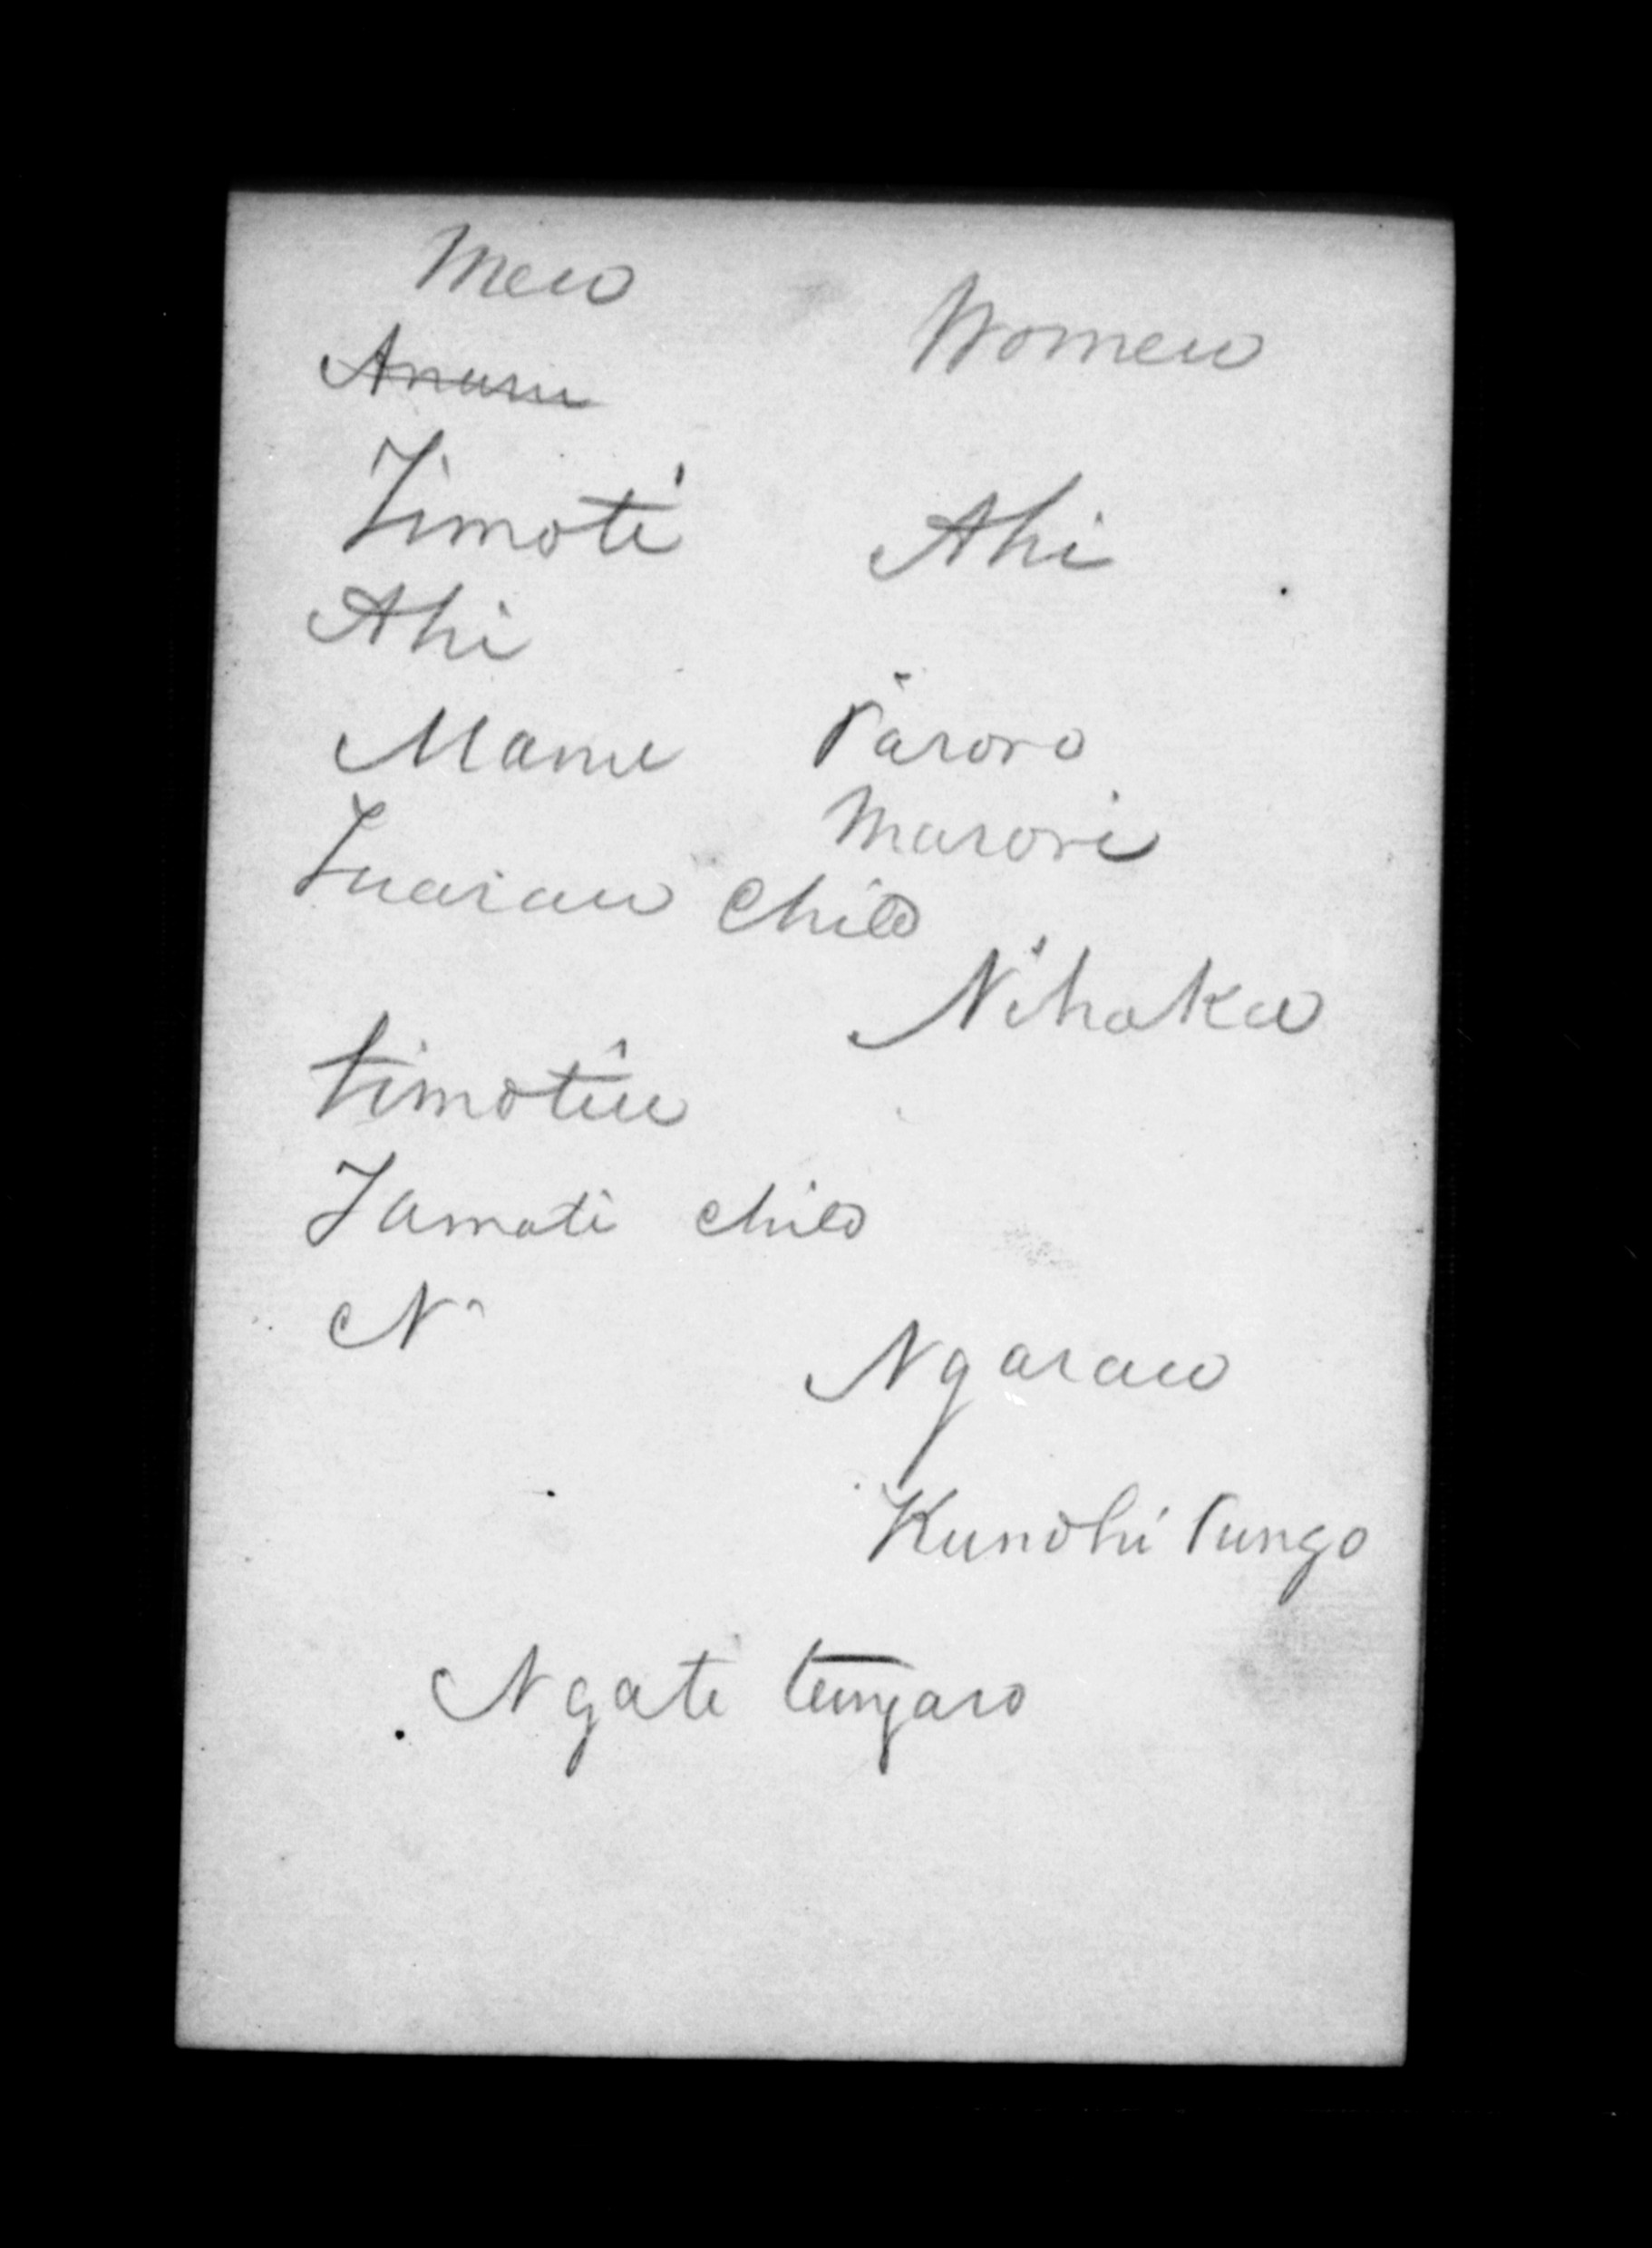 Men
Women
Anaru
Timoti
Ahi
Ahi
Manu
Paroro
Marori
Tuarau Child
Nihaka
timotiu
Tamati child
N
Ngarau
Kunohi rungo
Ngati tengaro